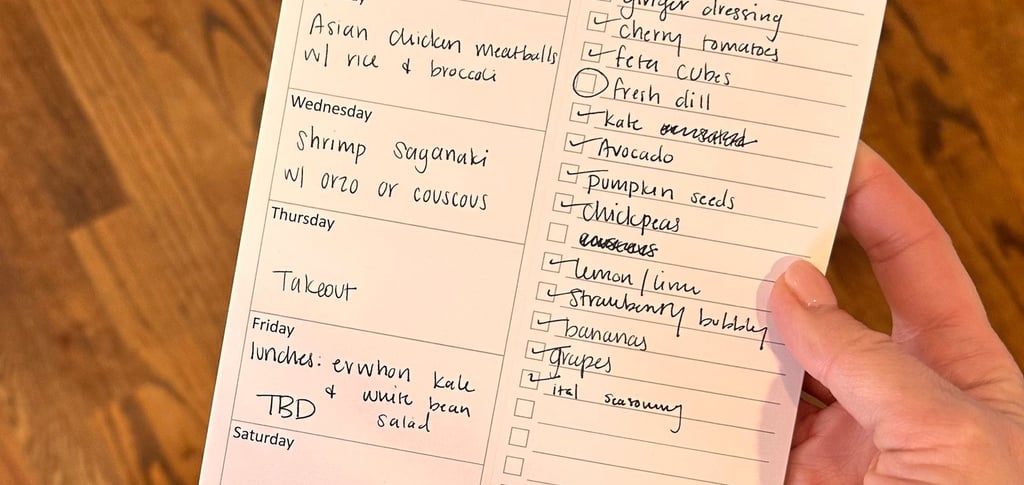 Asian chicken meatballs
w/ rice & broccoli
Wednesday
Shrimp Saganaki
w/ orzo or couscous
Thursday
Takeout
Friday
lunches: erwhon kale
& white bean
salad
TBD
Saturday
ginger dressing
cherry tomatoes
feta cubes
fresh dill
kale
Avocado
pumpkin seeds
chickpeas
couscous
lemon/lime
strawberry bubbly
bananas
grapes
ital seasoning